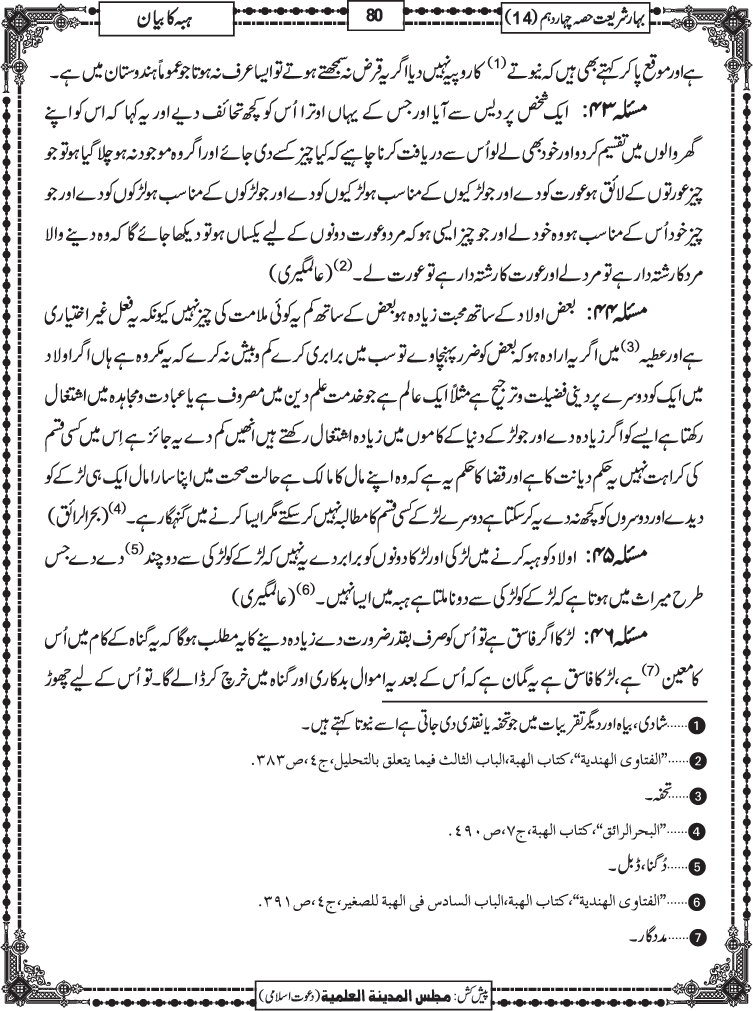 بہار شریعت حصہ چہاردہم (14)
80
ہبہ کا بیان
ہے اور موقع پا کر کہتے بھی ہیں کہ نیوتے (1) کا روپیہ نہیں دیا اگر یہ قرض نہ سمجھتے ہوتے تو ایسا عرف نہ ہوتا جو عموماً ہندوستان میں ہے۔
مسئلہ ۴۳: ایک شخص پردیس سے آیا اور جس کے یہاں اوترا اُس کو کچھ تحائف دیے اور یہ کہا کہ اس کو اپنے
گھر والوں میں تقسیم کردو اور خود بھی لے لو اُس سے دریافت کرنا چاہیے کہ کیا چیز کسے دی جائے اور اگر وہ موجود نہ ہو چلا گیا ہو تو جو
چیز عورتوں کے لائق ہو عورت کو دے اور جو لڑکیوں کے مناسب ہو لڑکیوں کو دے اور جو لڑکوں کے مناسب ہو لڑکوں کو دے اور جو
چیز خود اُس کے مناسب ہو وہ خود لے اور جو چیز ایسی ہو کہ مرد و عورت دونوں کے لیے یکساں ہو تو دیکھا جائے گا کہ وہ دینے والا
مرد کا رشتہ دار ہے تو مرد لے اور عورت کا رشتہ دار ہے تو عورت لے۔(2) (عالمگیری)
مسئلہ ۴۴: بعض اولاد کے ساتھ محبت زیادہ ہو بعض کے ساتھ کم یہ کوئی ملامت کی چیز نہیں کیونکہ یہ فعل غیر اختیاری
ہے اور عطیہ (3) میں اگر یہ ارادہ ہو کہ بعض کو ضرر پہنچاوے تو سب میں برابری کرے کم و بیش نہ کرے کہ یہ مکروہ ہے ہاں اگر اولاد
میں ایک کو دوسرے پر دینی فضیلت و ترجیح ہے مثلاً ایک عالم ہے جو خدمت علم دین میں مصروف ہے یا عبادت و مجاہدہ میں اشتغال
رکھتا ہے ایسے کو اگر زیادہ دے اور جو لڑکے دنیا کے کاموں میں زیادہ اشتغال رکھتے ہیں انھیں کم دے یہ جائز ہے اِس میں کسی قسم
کی کراہت نہیں یہ حکم دیانت کا ہے اور قضا کا حکم یہ ہے کہ وہ اپنے مال کا مالک ہے حالت صحت میں اپنا سارا مال ایک ہی لڑکے کو
دیدے اور دوسروں کو کچھ نہ دے یہ کرسکتا ہے دوسرے لڑکے کسی قسم کا مطالبہ نہیں کرسکتے مگر ایسا کرنے میں گنہگار ہے۔(4) (بحرالرائق)
مسئلہ ۴۵: اولاد کو ہبہ کرنے میں لڑکی اور لڑکا دونوں کو برابر دے یہ نہیں کہ لڑکے کو لڑکی سے دو چند (5) دے دے جس
طرح میراث میں ہوتا ہے کہ لڑکے کو لڑکی سے دونا ملتا ہے ہبہ میں ایسا نہیں۔(6) (عالمگیری)
مسئلہ ۴۶: لڑکا اگر فاسق ہے تو اُس کو صرف بقدر ضرورت دے زیادہ دینے کا یہ مطلب ہوگا کہ یہ گناہ کے کام میں اُس
کا معین (7) ہے، لڑکا فاسق ہے یہ گمان ہے کہ اُس کے بعد یہ اموال بدکاری اور گناہ میں خرچ کر ڈالے گا۔ تو اُس کے لیے چھوڑ
1......شادی، بیاہ اور دیگر تقریبات میں جو تحفہ یا نقدی دی جاتی ہے اسے نیوتا کہتے ہیں۔
2......"الفتاوی الهندية"، كتاب الهبة، الباب الثالث فيما يتعلق بالتحليل، ج٤، ص٣٨٣.
3......تحفہ۔
4......"البحرالرائق"، كتاب الهبة، ج٧، ص٤٩٠.
5......دُگنا، ڈبل۔
6......"الفتاوی الهندية"، كتاب الهبة، الباب السادس فی الهبة للصغير، ج٤، ص٣٩١.
7......مددگار۔
پیش کش: مجلس المدينة العلمية (دعوت اسلامی)